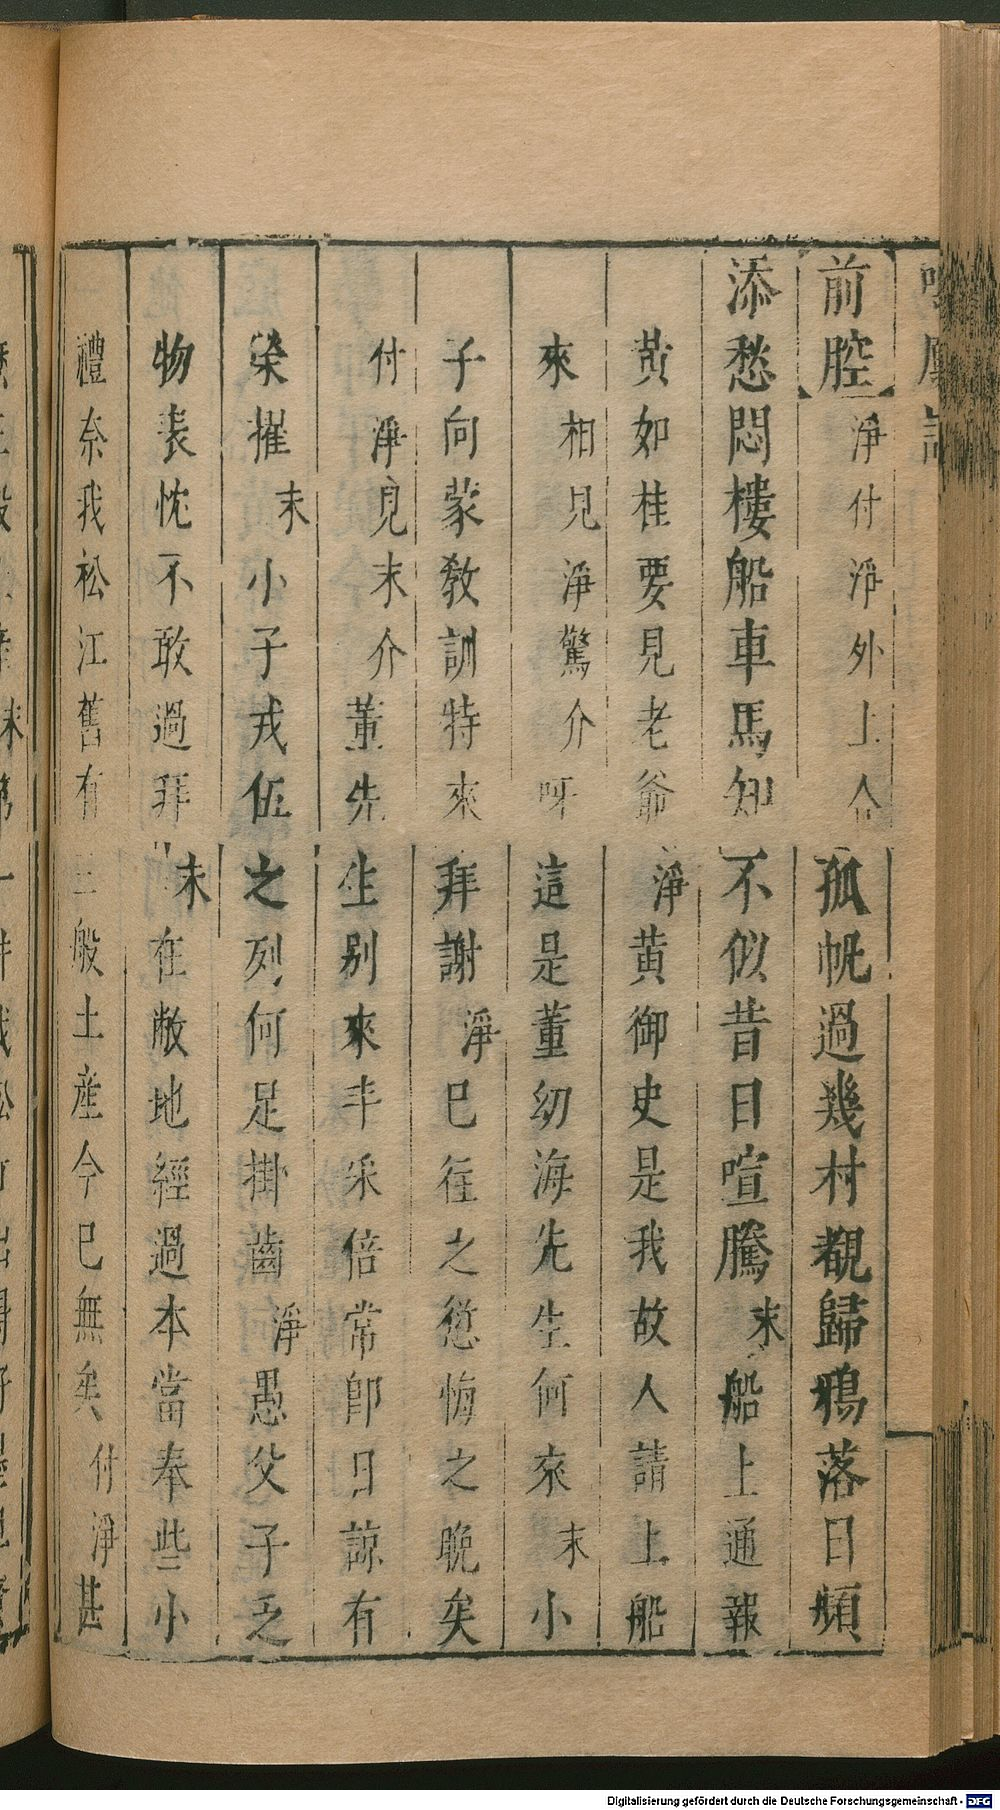 【前腔】淨付淨外上合孤帆過幾村觀歸鴉落日頻
添愁悶樓船車馬知不似昔日喧騰末船上通報
黃如桂要見老爺淨黃御史是我故人請上船
來相見淨驚介呀這是董幼海先生何來末小
子向蒙教訓特來拜謝淨已往之愆悔之晚矣
付淨見末介董先生別來丰采倍常即日諒有
榮擢末小子戎伍之列何足掛齒淨愚父子乏
物表忱不敢過拜末在敝地經過本當奉些小
禮奈我松江舊有三般土產今已無矣付淨甚
Digitalisierung gefördert durch die Deutsche Forschungsgemeinschaft - DFG